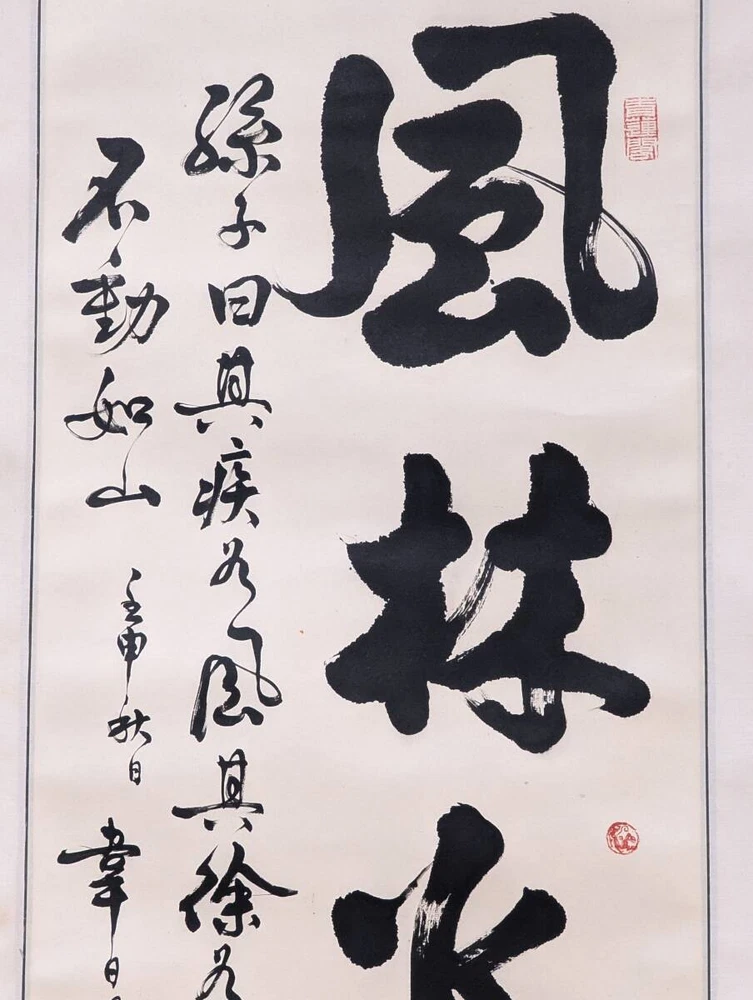 風林火
孫子曰其疾如風其徐如
不動如山
壬申秋日
韋日